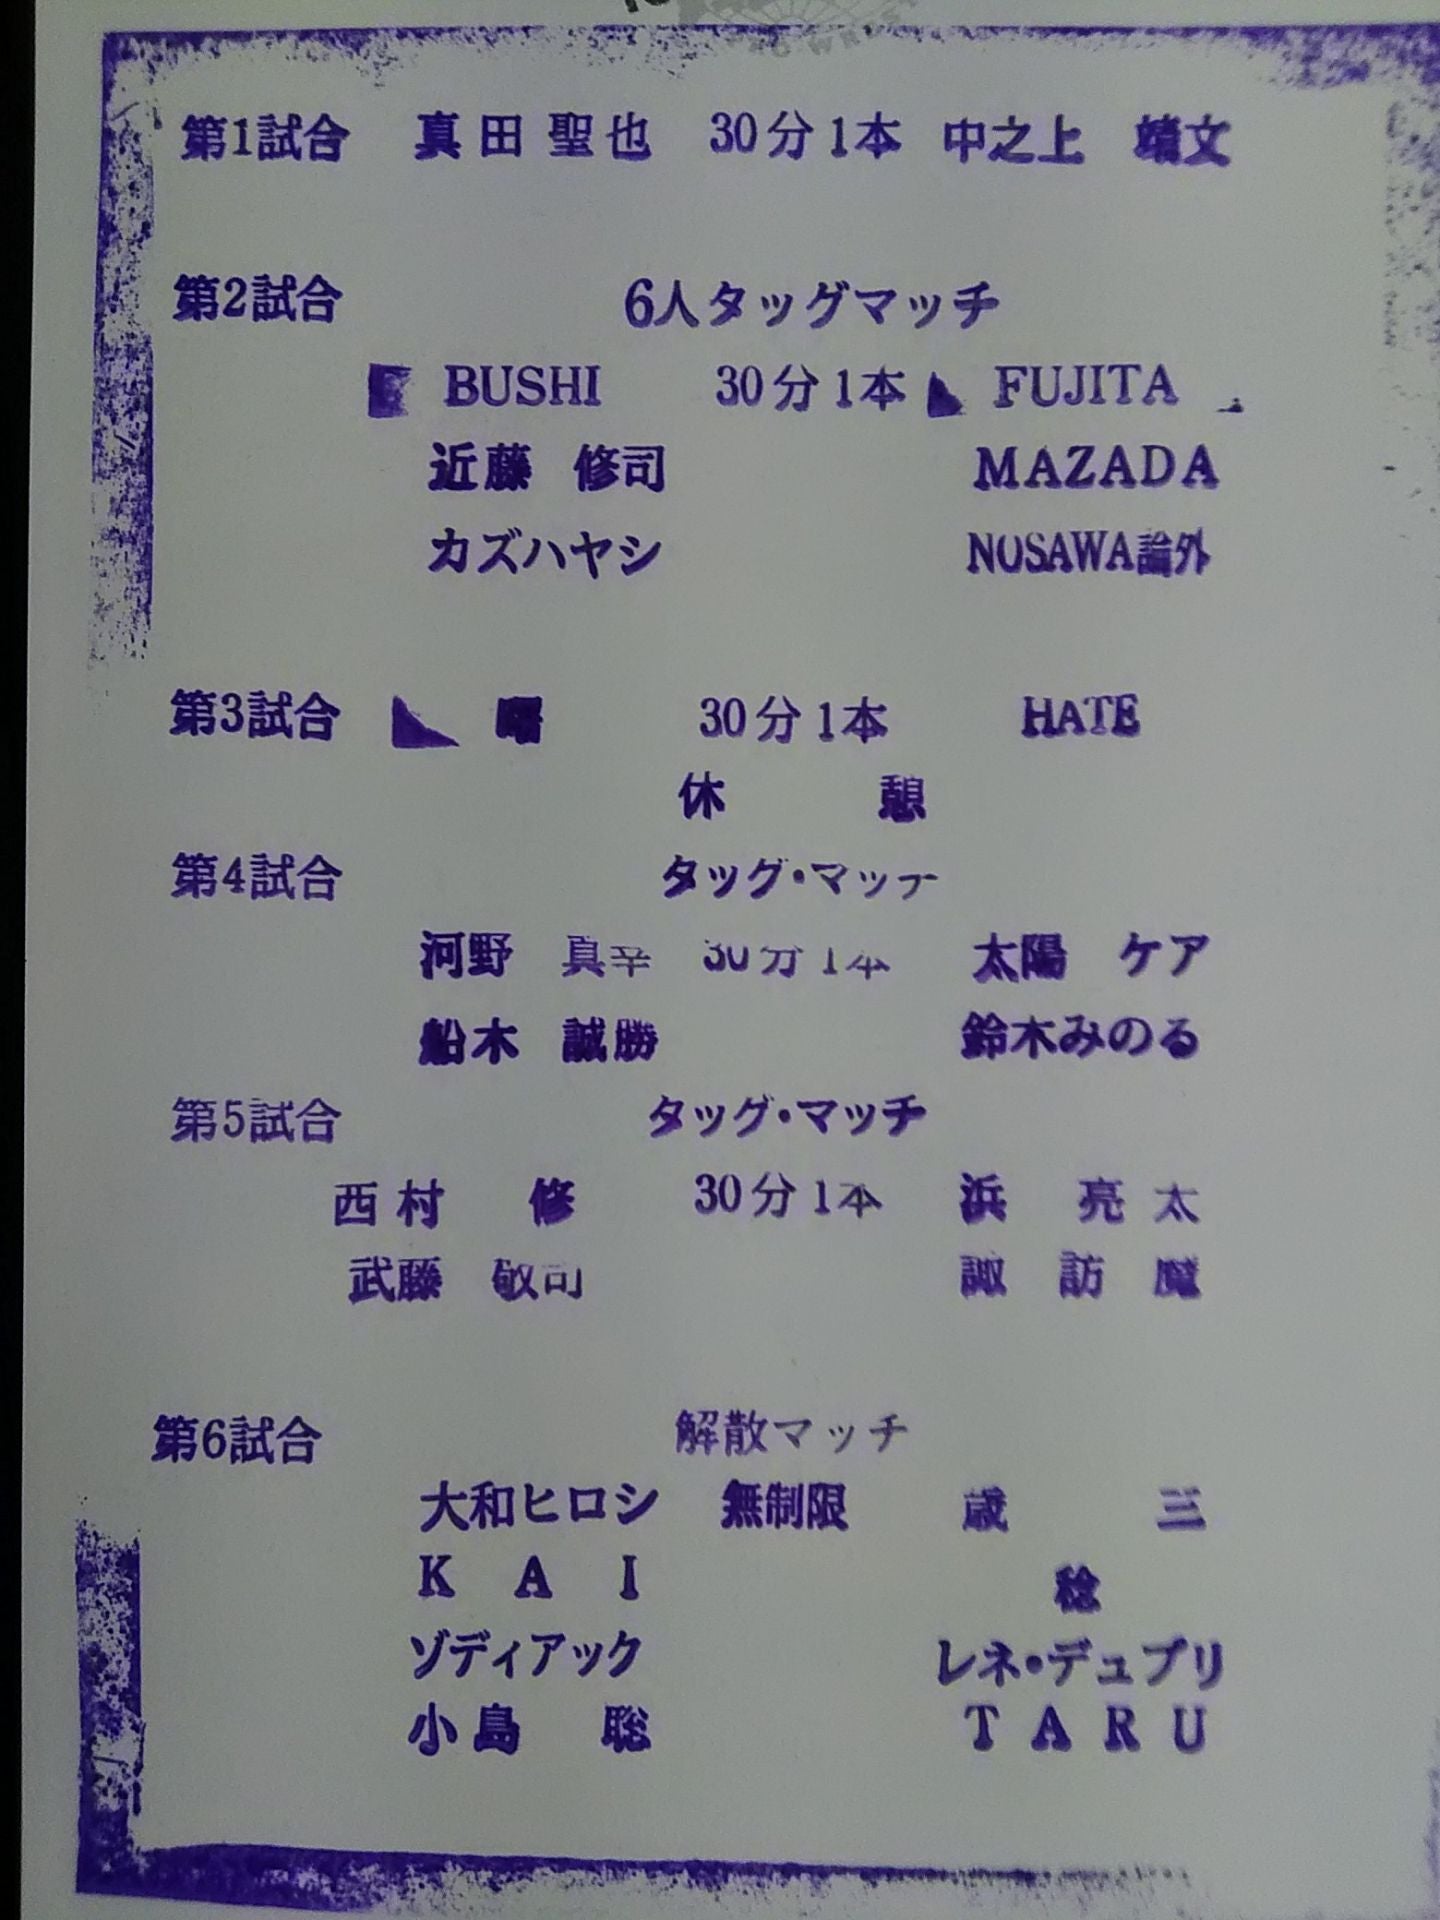 第1試合 真田聖也 30分1本 中之上 靖文
第2試合 6人タッグマッチ
BUSHI 30分1本 FUJITA
近藤 修司 MAZADA
カズハヤシ NOSAWA論外
第3試合 曙 30分1本 HATE
休 憩
第4試合 タッグ・マッチ
河野 真幸 30分1本 太陽 ケア
船木 誠勝 鈴木みのる
第5試合 タッグ・マッチ
西村 修 30分1本 浜 亮太
武藤 敬司 諏訪魔
第6試合 解散マッチ
大和ヒロシ 無制限 歳三
KAI 稔
ゾディアック レネ・デュプリ
小島 聡 TARU